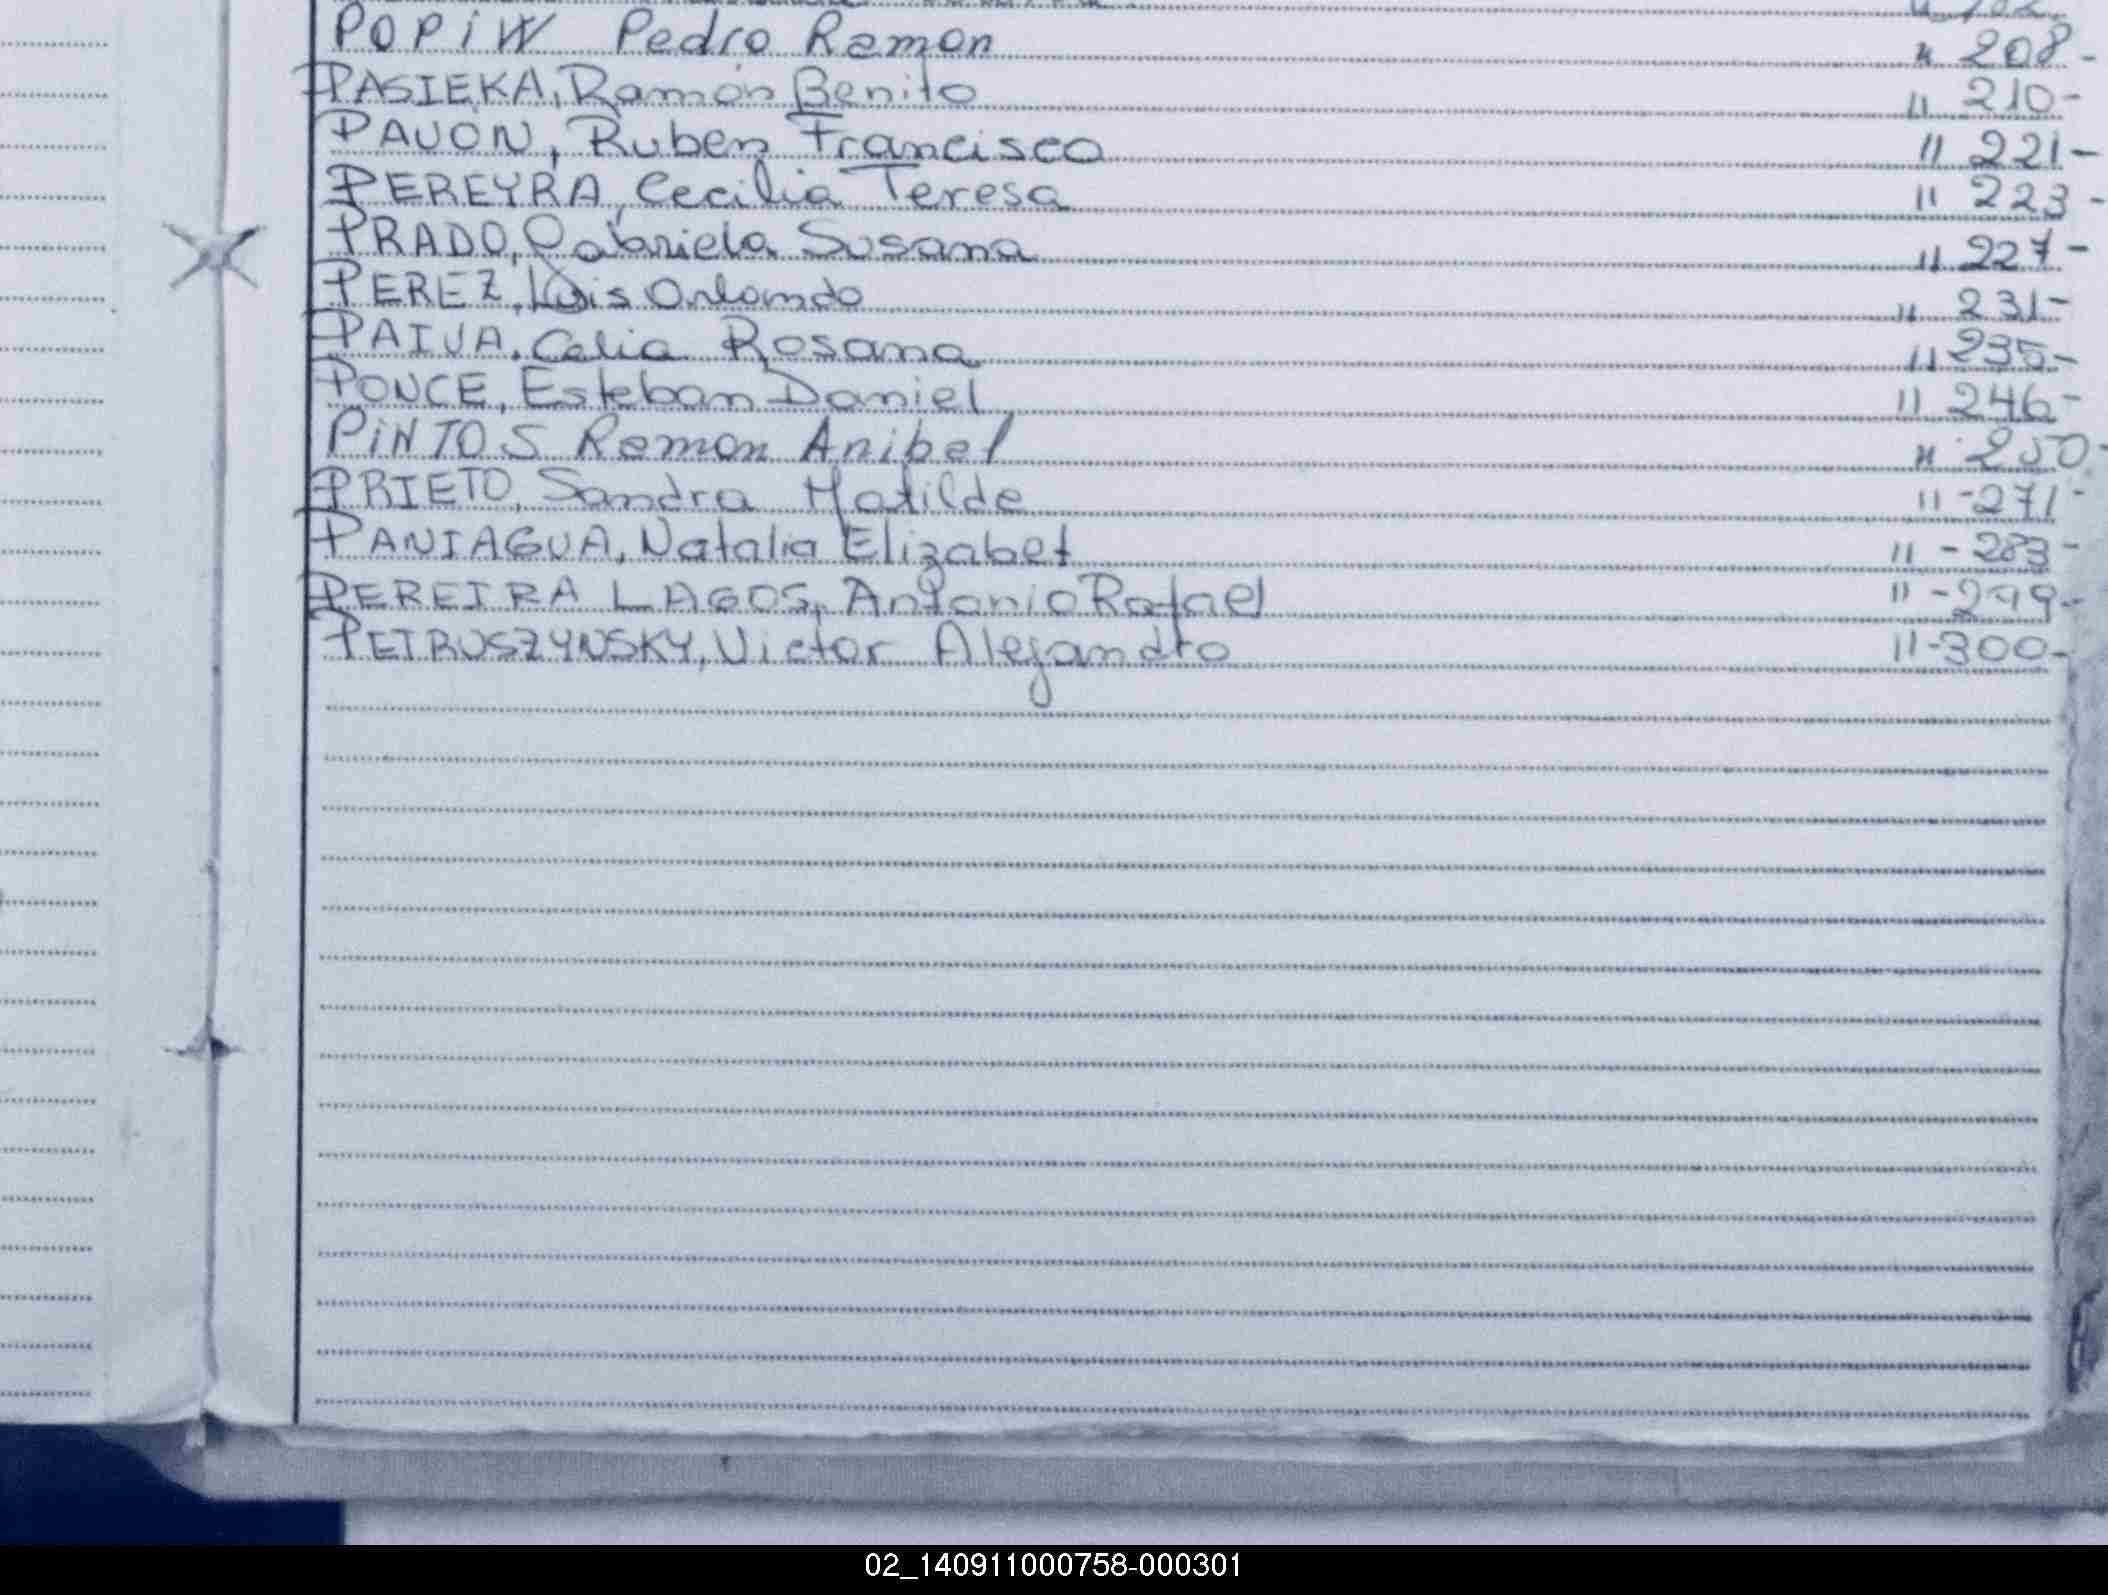 POPiW Pedro Ramon " 208-
PASIEKA, Ramón Benito " 210-
PAVON, Ruben Francisco " 221-
PEREYRA, Cecilia Teresa " 223-
PRADO, Gabriela Susana " 227-
PEREZ, Luis Orlando " 231-
PAIVA, Celia Rosana " 235-
PONCE, Esteban Daniel " 246-
PiNTOS Ramon Anibal " 250-
PRIETO, Sandra Matilde " -271-
PANIAGUA, Natalia Elizabet " -283-
PEREIRA LAGOS, Antonio Rafael " -299-
PETRUSZYNSKY, Victor Alejandro " -300-
02_140911000758-000301